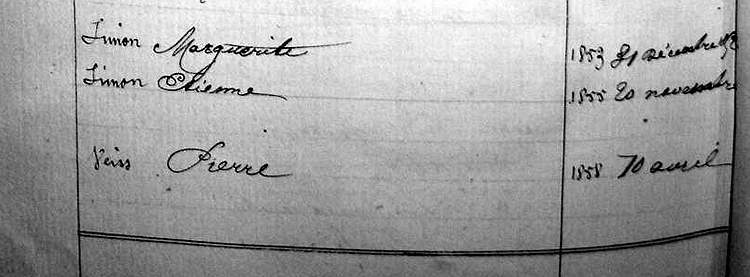 Simon Marguerite 1853 31 décembre
Simon Etienne 1855 20 novembre
Veiss Pierre 1858 10 avril